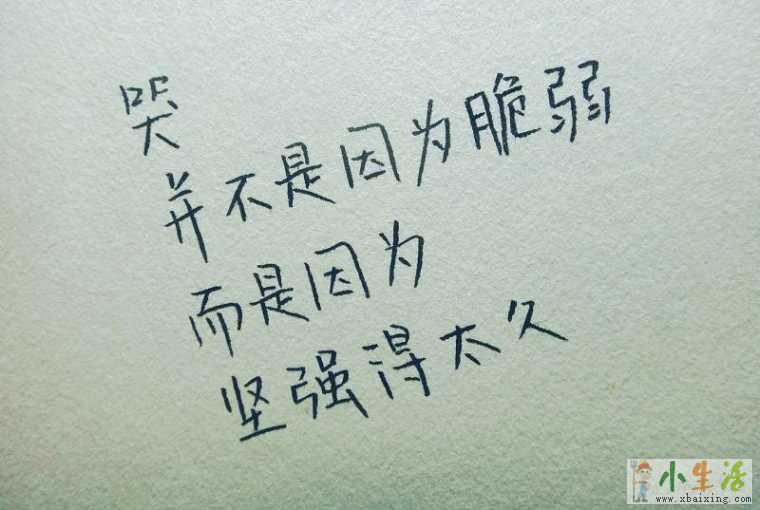 哭
并不是因为脆弱
而是因为
坚强得太久
小生活
www.xbaixing.com